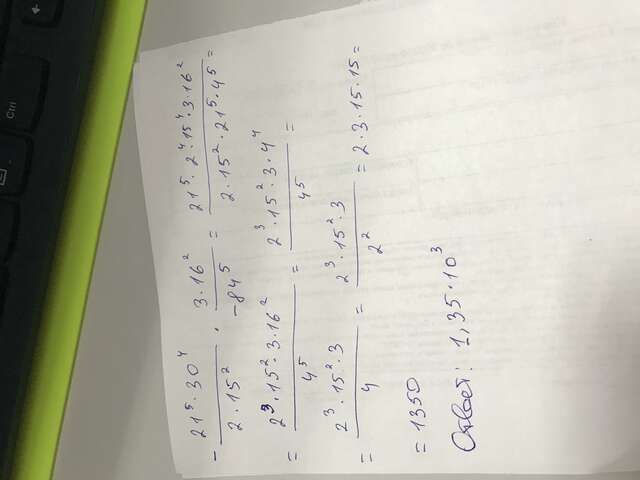 Ctrl
- 21⁵·30⁴ / 2·15² · 3·16² / -84⁵ = 21⁵·2⁴·15⁴·3·16² / 2·15²·21⁵·4⁵ =
= 2³·15²·3·16² / 4⁵ = 2³·15²·3·4⁴ / 4⁵ =
= 2³·15²·3 / 4 = 2³·15²·3 / 2² = 2·3·15·15 =
= 1350
Ответ: 1,35·10³